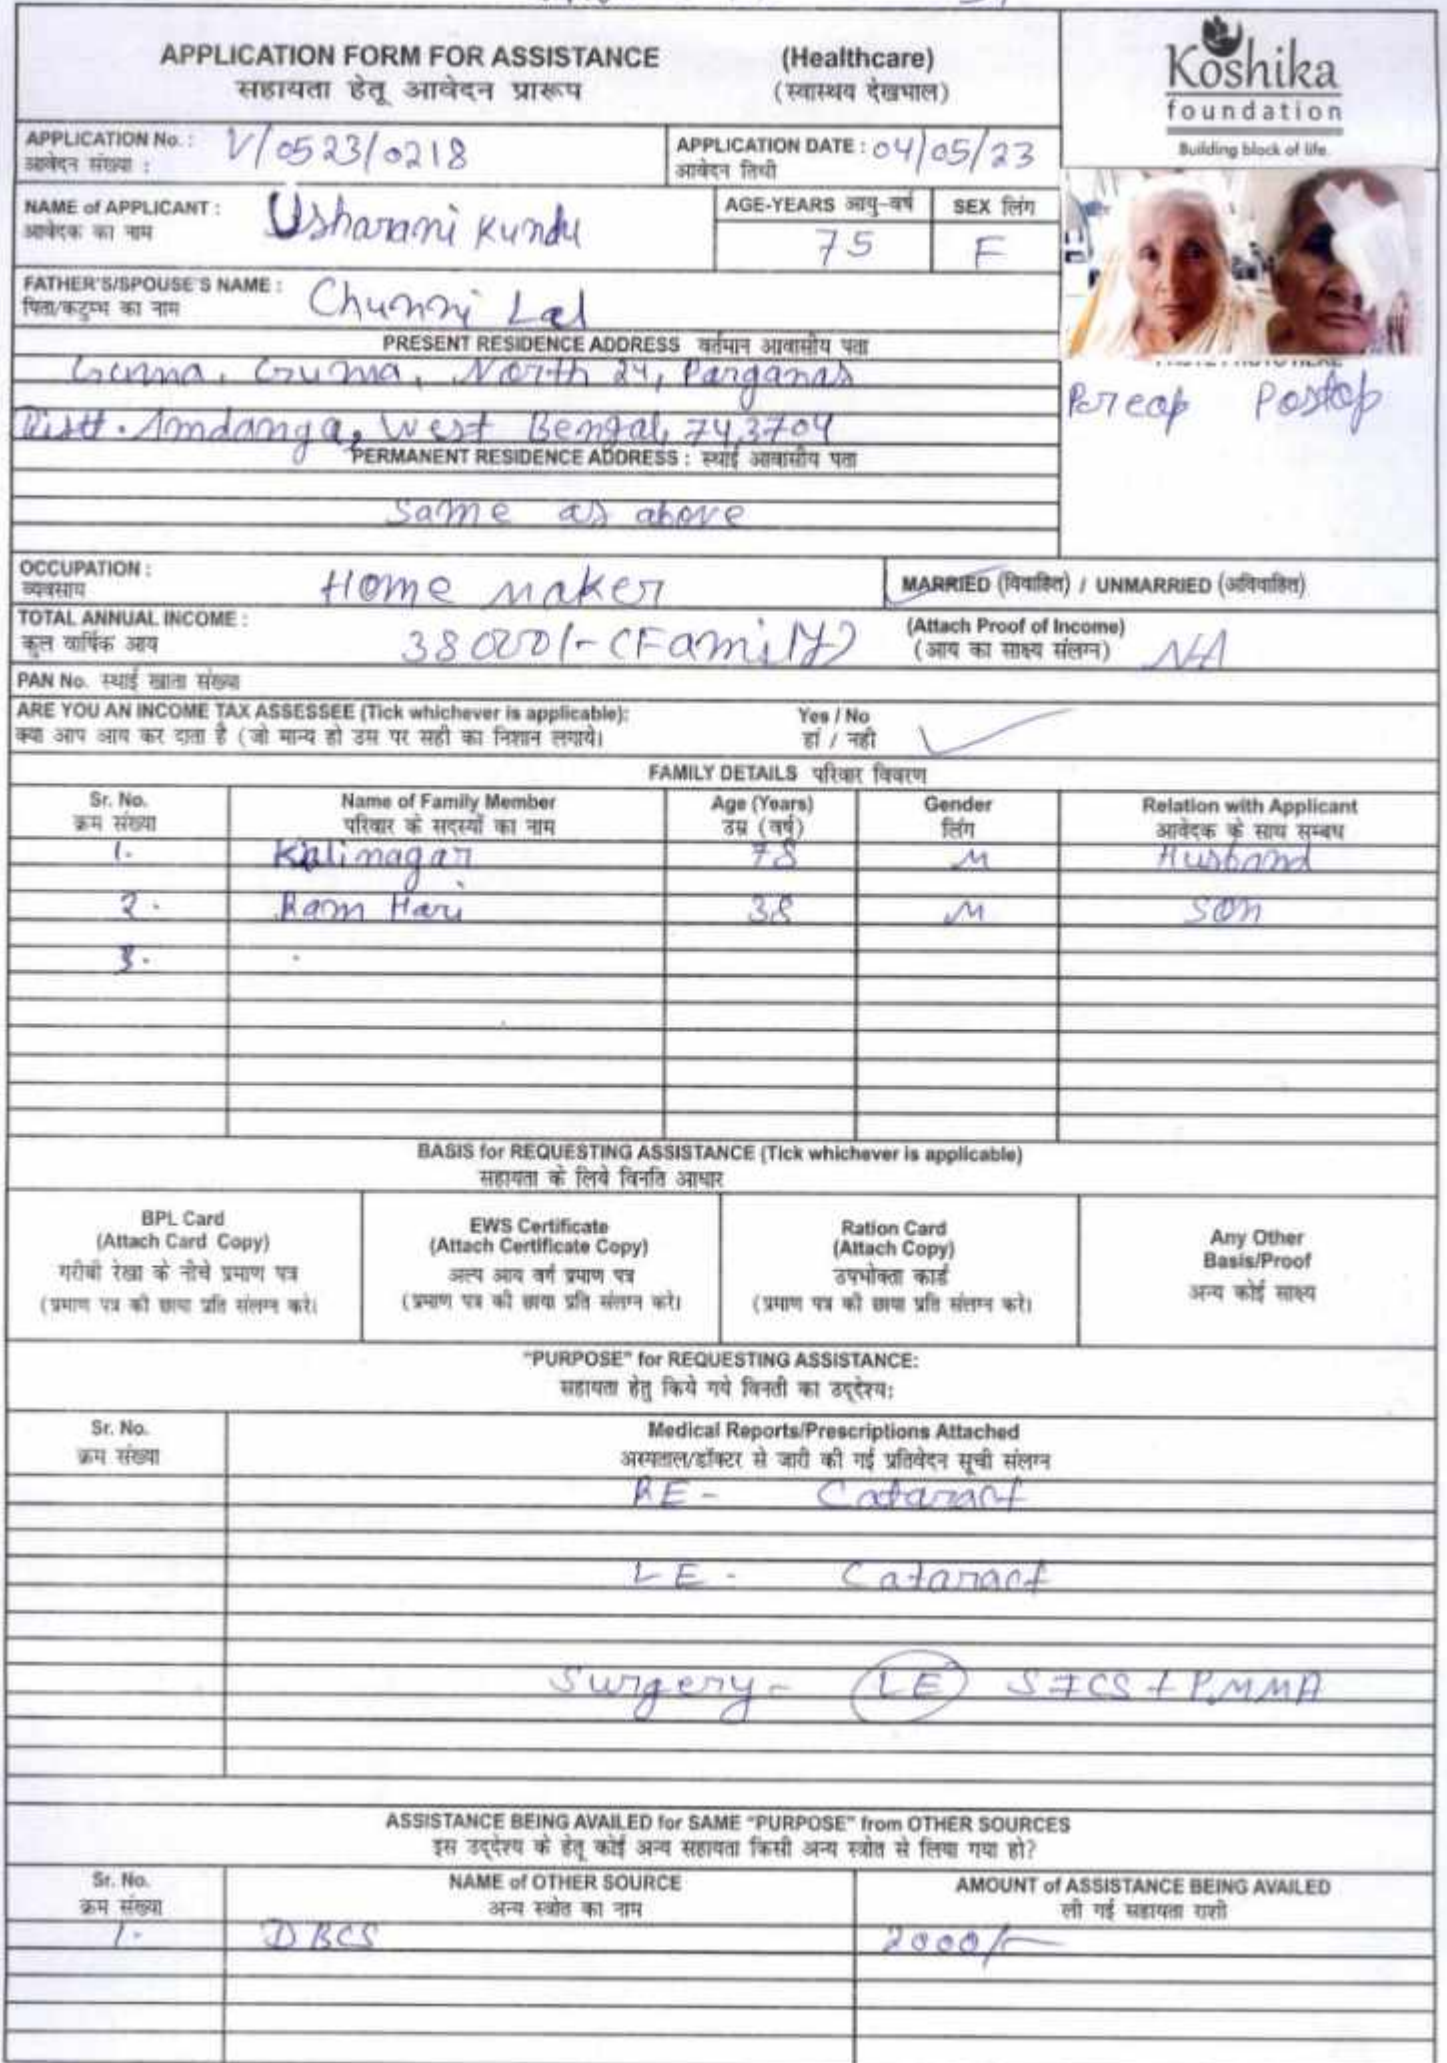 APPLICATION FORM FOR ASSISTANCE (Healthcare)
सहायता हेतू आवेदन प्रारूप (स्वास्थय देखभाल)
Koshika
foundation
Building block of life.
APPLICATION No. : V/0523/0218 APPLICATION DATE : 04/05/23
आवेदन संख्या : आवेदन तिथी
NAME of APPLICANT : Usharani Kundu AGE-YEARS आयु-वर्ष SEX लिंग
आवेदक का नाम 75 F
FATHER'S/SPOUSE'S NAME : Chunni Lal
पिता/कटुम्भ का नाम
PRESENT RESIDENCE ADDRESS वर्तमान आवासीय पता
Guma, Guma, North 24, Parganas
Distt. Amdanga, West Bengal, 743704
Preop Postop
PERMANENT RESIDENCE ADDRESS : स्थाई आवासीय पता
Same as above
OCCUPATION : Home maker MARRIED (विवाहित) / UNMARRIED (अविवाहित)
व्यवसाय
TOTAL ANNUAL INCOME : 38000/- (Family) (Attach Proof of Income)
कुल वार्षिक आय (आय का साक्ष्य संलग्न) NA
PAN No. स्थाई खाता संख्या
ARE YOU AN INCOME TAX ASSESSEE (Tick whichever is applicable): Yes / No
क्या आप आय कर दाता है (जो मान्य हो उस पर सही का निशान लगाये। हां / नही
FAMILY DETAILS परिवार विवरण
Sr. No. Name of Family Member Age (Years) Gender Relation with Applicant
क्रम संख्या परिवार के सदस्यों का नाम उम्र (वर्ष) लिंग आवेदक के साथ सम्बध
1. Kalinagar 78 M Husband
2. Ram Hari 38 M Son
3.
BASIS for REQUESTING ASSISTANCE (Tick whichever is applicable)
सहायता के लिये विनति आधार
BPL Card
(Attach Card Copy)
गरीबी रेखा के नीचे प्रमाण पत्र
(प्रमाण पत्र की छाया प्रति संलग्न करे।
EWS Certificate
(Attach Certificate Copy)
अल्प आय वर्ग प्रमाण पत्र
(प्रमाण पत्र की छाया प्रति संलग्न करे।
Ration Card
(Attach Copy)
उपभोक्ता कार्ड
(प्रमाण पत्र की छाया प्रति संलग्न करे।
Any Other
Basis/Proof
अन्य कोई साक्ष्य
"PURPOSE" for REQUESTING ASSISTANCE:
सहायता हेतु किये गये विनती का उद्देश्य:
Sr. No. Medical Reports/Prescriptions Attached
क्रम संख्या अस्पताल/डॉक्टर से जारी की गई प्रतिवेदन सूची संलग्न
RE - Cataract
LE - Cataract
Surgery - LE SICS + PMMA
ASSISTANCE BEING AVAILED for SAME "PURPOSE" from OTHER SOURCES
इस उद्देश्य के हेतू कोई अन्य सहायता किसी अन्य स्त्रोत से लिया गया हो?
Sr. No. NAME of OTHER SOURCE AMOUNT of ASSISTANCE BEING AVAILED
क्रम संख्या अन्य स्त्रोत का नाम ली गई सहायता राशी
1. DBCS 2000/-